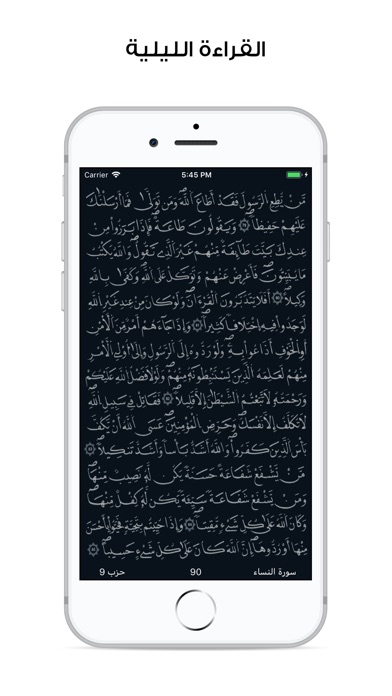 القراءة الليلية
Carrier 5:45 PM
مَّنْ يُّطِعِ اِ۬لرَّسُولَ فَقَدَ اَطَاعَ اَ۬للَّهَ وَمَن تَوَلَّىٰ فَمَآ أَرْسَلْنَٰكَ
عَلَيْهِمْ حَفِيظاٗ ۖ وَيَقُولُونَ طَاعَةٞ ۖ فَإِذَا بَرَزُواْ مِنْ
عِندِكَ بَيَّتَ طَآئِفَةٞ مِّنْهُمْ غَيْرَ اَ۬لذِے تَقُولُ ۖ وَاللَّهُ يَكْتُبُ
مَا يُبَيِّتُونَ ۖ فَأَعْرِضْ عَنْهُمْ وَتَوَكَّلْ عَلَى اَ۬للَّهِ ۖ وَكَفَىٰ بِاللَّهِ
وَكِيلاً ۖ اَفَلَا يَتَدَبَّرُونَ اَ۬لْقُرْءَانَ ۖ وَلَوْ كَانَ مِنْ عِندِ غَيْرِ اِ۬للَّهِ
لَوَجَدُواْ فِيهِ اِ۪خْتِلَٰفاٗ كَثِيراٗ ۖ وَإِذَا جَآءَهُمُۥٓ أَمْرٞ مِّنَ اَ۬لَامْنِ
أَوِ اِ۬لْخَوْفِ أَذَاعُواْ بِهِۦ ۖ وَلَوْ رَدُّوهُ إِلَى اَ۬لرَّسُولِ وَإِلَىٰٓ أُوْلِے اِ۬لَامْرِ
مِنْهُمْ لَعَلِمَهُ اُ۬لذِينَ يَسْتَنۢبِطُونَهُۥ مِنْهُمْ ۖ وَلَوْلَا فَضْلُ اُ۬للَّهِ عَلَيْكُمْ
وَرَحْمَتُهُۥ لَاتَّبَعْتُمُ اُ۬لشَّيْطَٰنَ إِلَّا قَلِيلاٗ ۖ فَقَٰتِلْ فِے سَبِيلِ اِ۬للَّهِ
لَا تُكَلَّفُ إِلَّا نَفْسَكَ ۖ وَحَرِّضِ اِ۬لْمُومِنِينَ ۖ عَسَى اَ۬للَّهُ أَنْ يَّكُفَّ
بَأْسَ اَ۬لذِينَ كَفَرُواْ ۖ وَاللَّهُ أَشَدُّ بَأْساٗ وَأَشَدُّ تَنكِيلاٗ ۖ
مَّنْ يَّشْفَعْ شَفَٰعَةً حَسَنَةٗ يَكُن لَّهُۥ نَصِيبٞ مِّنْهَا ۖ
وَمَنْ يَّشْفَعْ شَفَٰعَةٗ سَيِّئَةٗ يَكُن لَّهُۥ كِفْلٞ مِّنْهَا ۖ
وَكَانَ اَ۬للَّهُ عَلَىٰ كُلِّ شَےْءٖ مُّقِيتاٗ ۖ وَإِذَا حُيِّيتُم بِتَحِيَّةٖ فَحَيُّواْ بِأَحْسَنَ
مِنْهَآ أَوْ رُدُّوهَآ ۖ إِنَّ اَ۬للَّهَ كَانَ عَلَىٰ كُلِّ شَےْءٍ حَسِيباً ۖ
سورة النساء 90 حزب 9